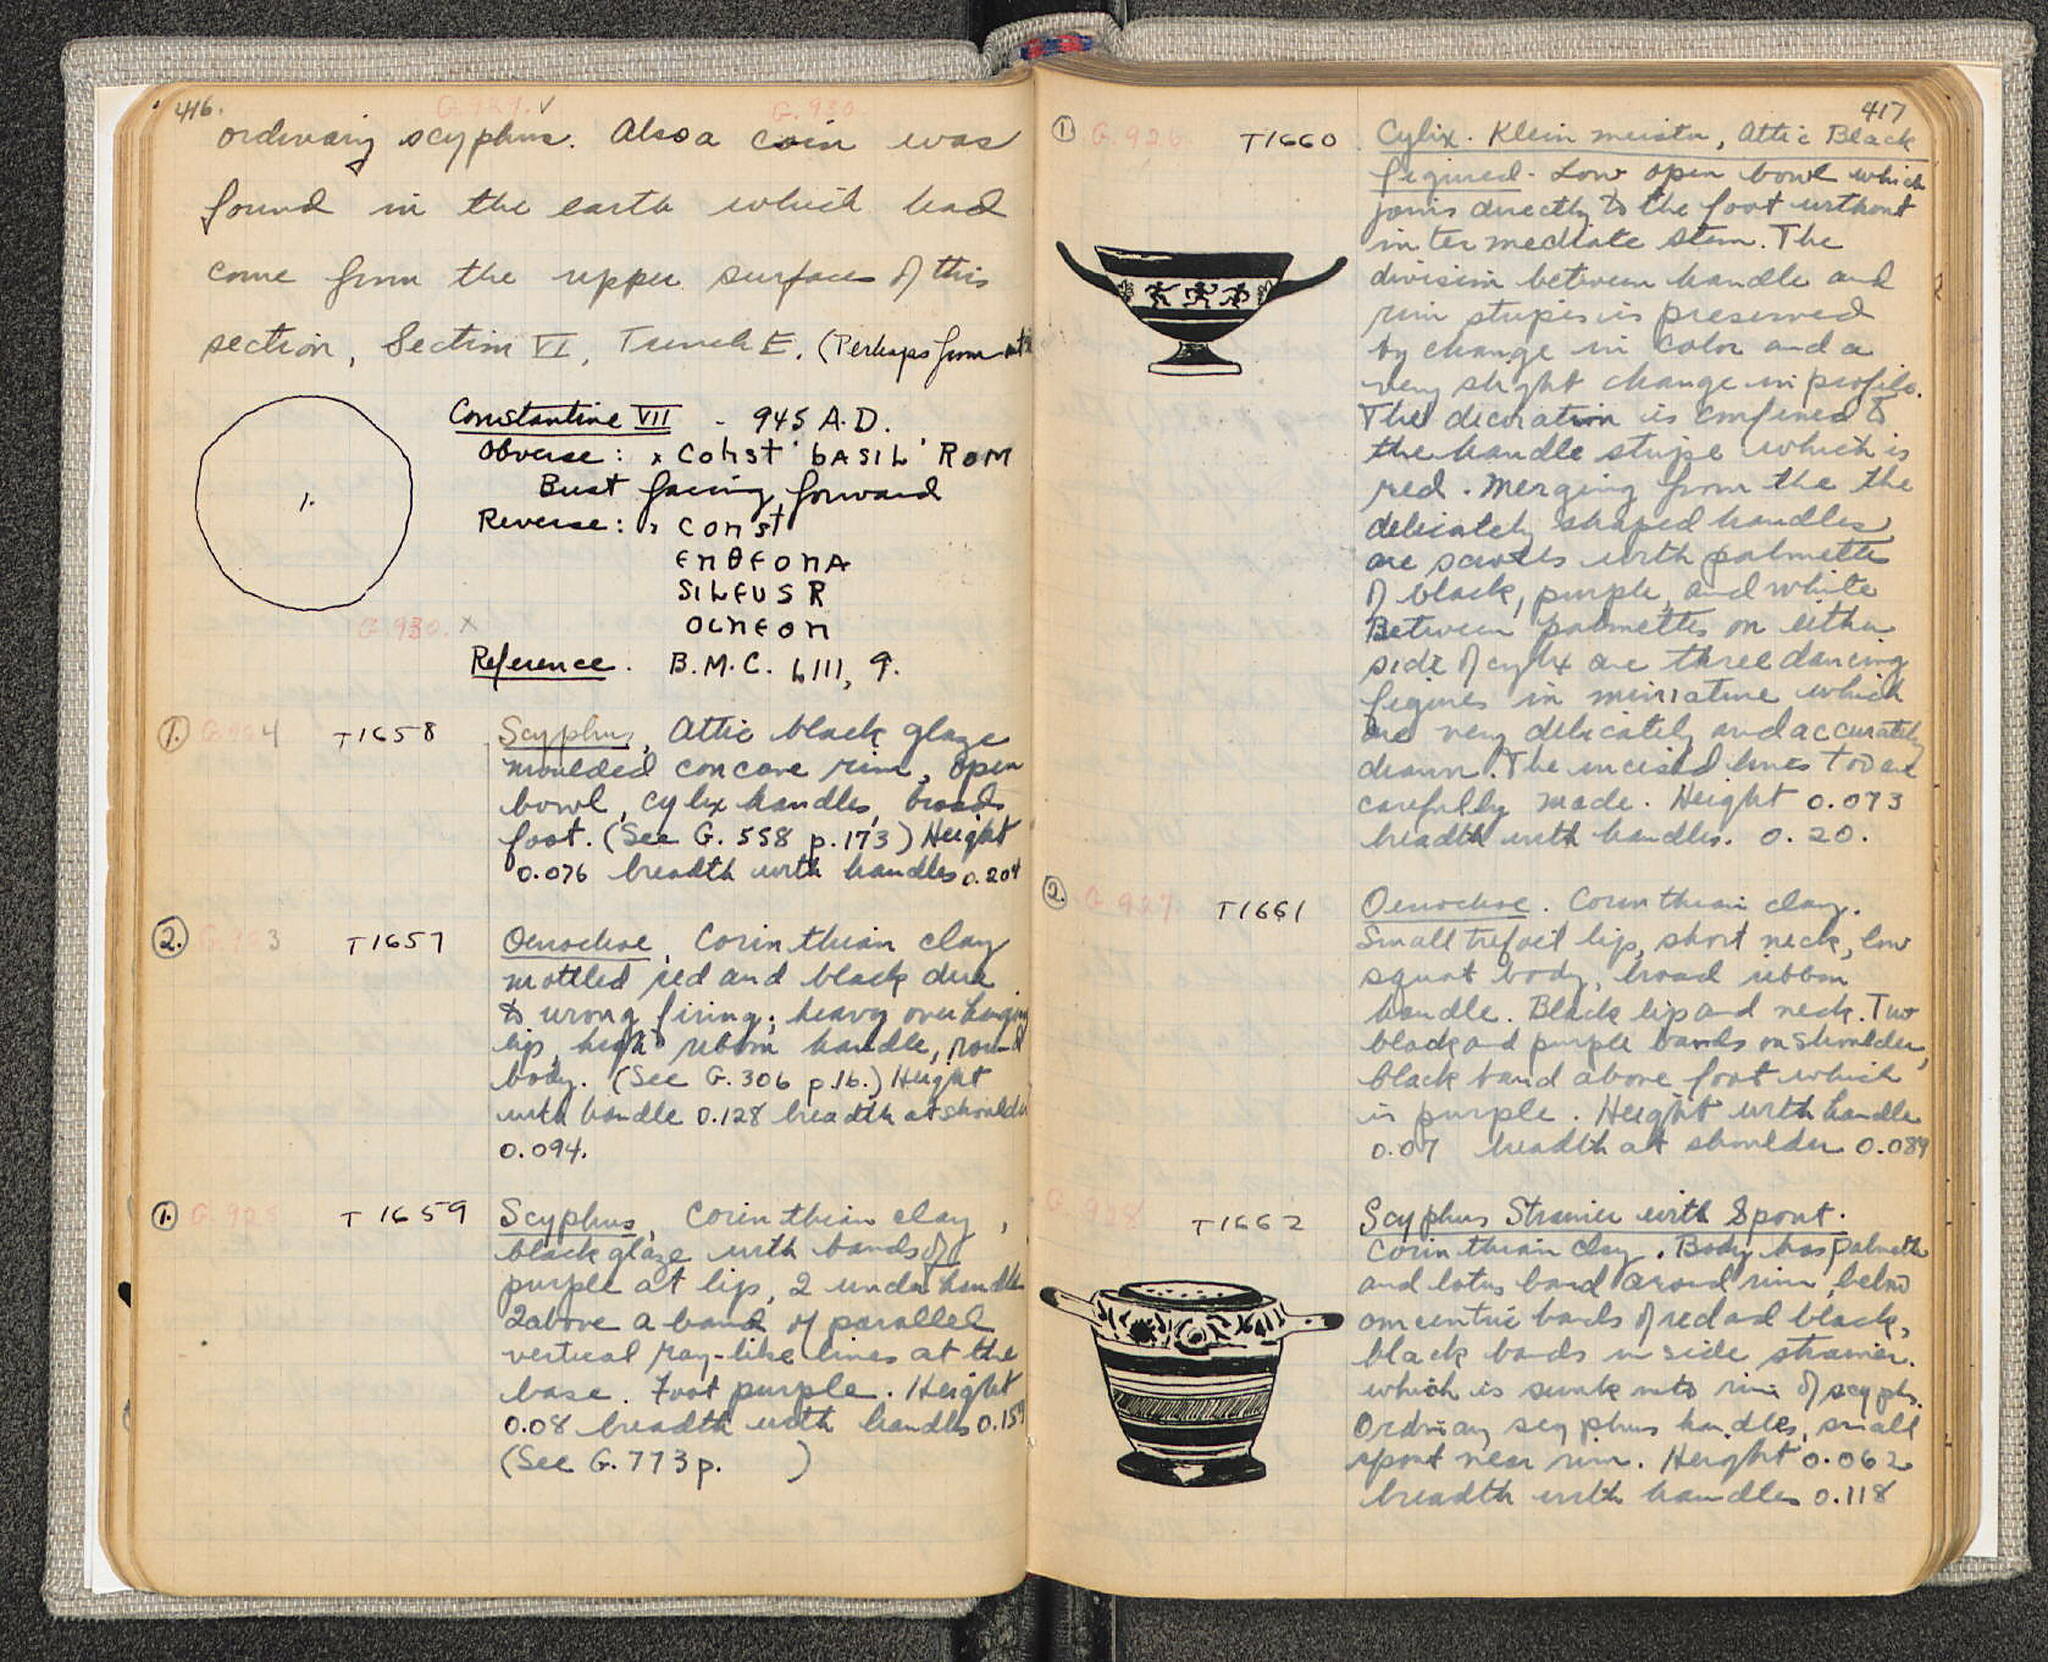 416.
G. 929. √ G. 930
ordinary scyphus. Also a coin was
found in the earth which had
come from the upper surface of this
section, Section VI, Trench E. (Perhaps from
1.
Constantine VII - 945 A.D.
Obverse: x Const' bASIL' ROM
Bust facing forward
Reverse: x Const
EnθEOnA
SILEUSR
OMEOn
G. 930. x
Reference. B.M.C. LIII, 9.
1. G. 924 T1658 Scyphus, Attic black glaze
moulded concave rim, open
bowl, cylix handles, broad
foot. (See G. 558 p. 173) Height
0.076 breadth with handles 0.204
2. G. 923 T1657 Oenochoe, Corinthian clay
mottled red and black due
to wrong firing; heavy overhanging
lip, high ribbon handle, round
body. (See G. 306 p. 16.) Height
with handle 0.128 breadth at shoulder
0.094.
1. G. 925 T1659 Scyphus, Corinthian clay,
black glaze with bands of
purple at lip, 2 under handles
2 above a band of parallel
vertical ray-like lines at the
base. Foot purple. Height
0.08 breadth with handles 0.159
(See G. 773 p. )
417
1. G. 926 T1660 Cylix. Klein meister, Attic Black
figured. Low open bowl which
joins directly to the foot without
intermediate stem. The
division between handle and
rim stripes is preserved
by change in color and a
very slight change in profile.
The decoration is confined to
the handle stripe which is
red. Merging from the the
delicately shaped handles
are scrolls with palmettes
of black, purple, and white
Between palmettes on either
side of cylix are three dancing
figures in miniature which
are very delicately and accurately
drawn. The incised lines too are
carefully made. Height 0.073
breadth with handles. 0.20.
2. G. 927. T1661 Oenochoe. Corinthian clay.
Small trefoil lip, short neck, low
squat body, broad ribbon
handle. Black lip and neck. Two
black and purple bands on shoulder,
black band above foot which
is purple. Height with handle
0.07 breadth at shoulder 0.089
G. 928 T1662 Scyphus Strainer with Spout.
Corinthian clay. Body has palmette
and lotus band around rim, below
concentric bands of red and black,
black bands inside strainer.
which is sunk into rim of scyphs.
Ordinary scyphus handles, small
spout near rim. Height 0.062
breadth with handles 0.118